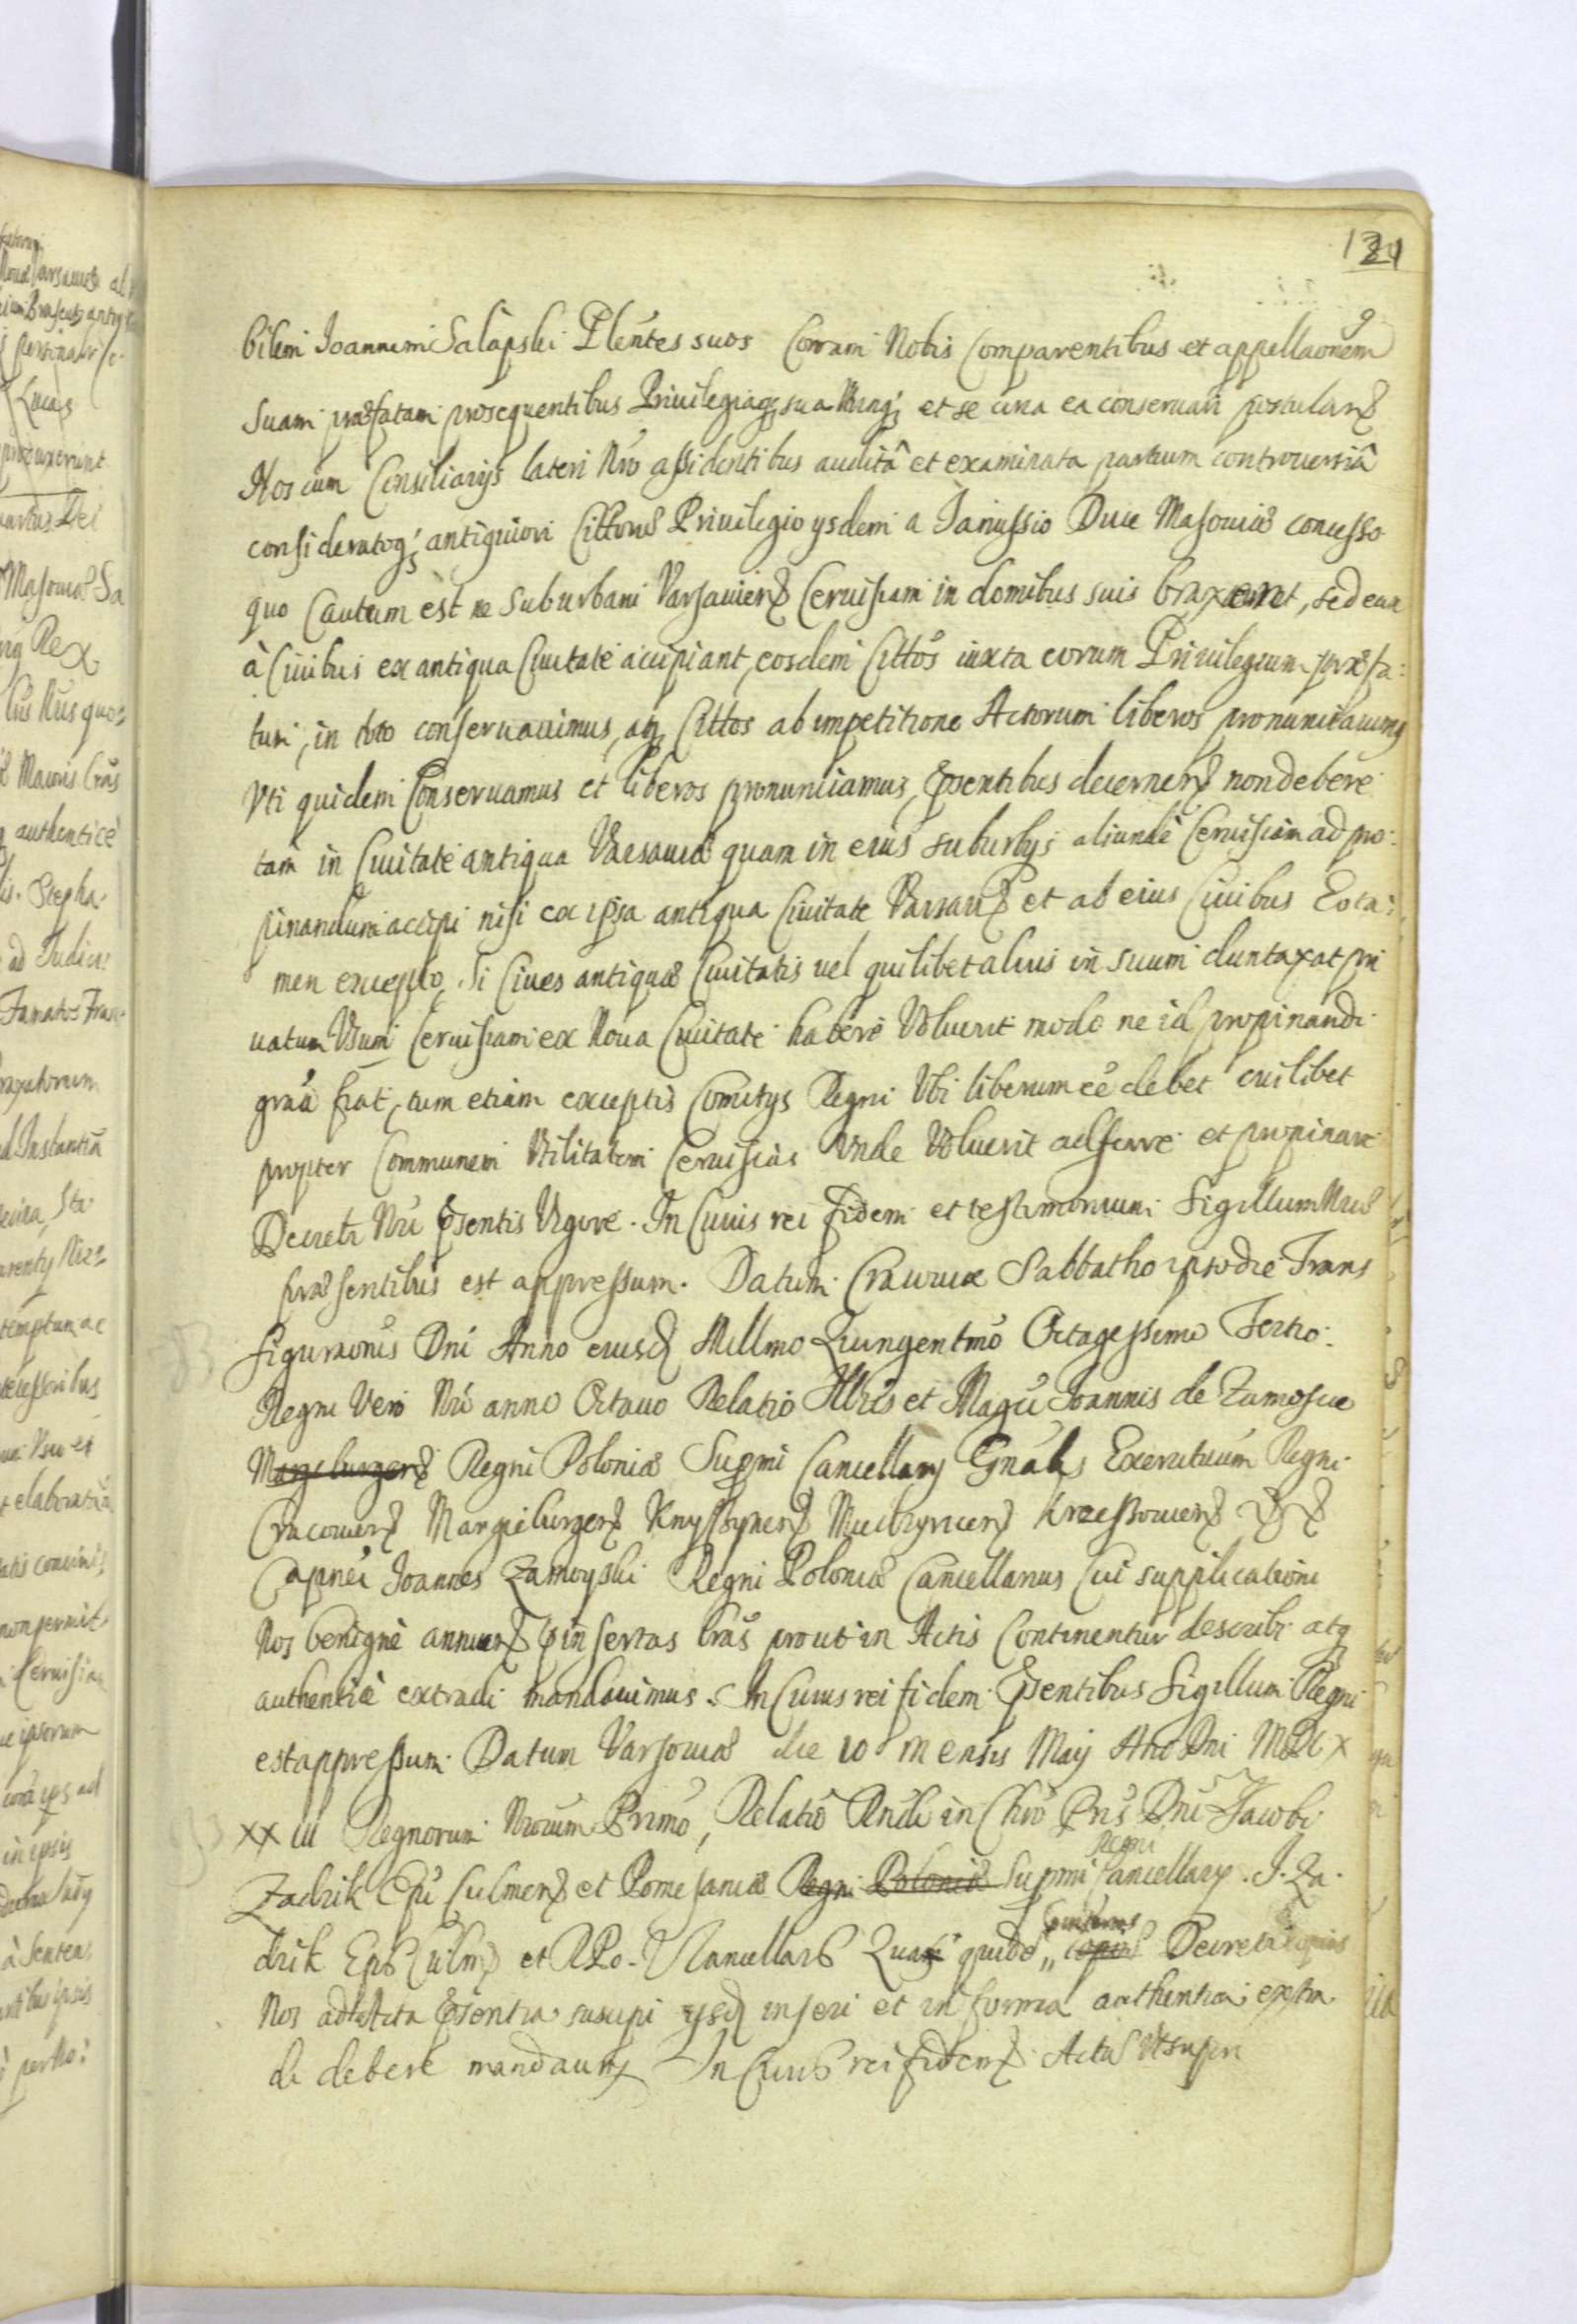 121
9
bilem Joannem Salapski Plentes suos Coram Nobis Comparentibus et appellaonem
suam præfatam prosequentibus Priuilegiaq sua et se circa ea conseruari postulans
Nos cum Consiliarijs lateri Nro assidentibus auditâ et examinata partium controuersiâ
consideratoq antiquiori Cittorum Priuilegio ysdem a Janussio Duce Masouiæ concesso
quo Cautum est ne suburbani Varsauiens Ceruisiam in domibus suis braxent, sed eam
à Ciuibus ex antiqua Ciuitate accipiant, eosdem Cittos iuxta eorum Priuilegium præfa:
tum, in toto conseruauimus, atq Cittos ab impetitione Actorum liberos pronunciauimus
Vti quidem Conseruamus et liberos pronunciamus, Psentibus decernens non debere
tam in Ciuitate antiqua Varsauia quam in eius suburbijs aliunde Ceruisiam ad pro:
pinandum accipi nisi ex ipsa antiqua Ciuitate Varsaus et ab eius Ciuibus Eo ta:
men excepto, Si Ciues antiquæ Ciuitatis uel quilibet alius in suum duntaxat pri
uatum Vsum Ceruisiam ex Noua Ciuitate habere Voluerit modo ne id propinandi
graã fiat, tum etiam exceptis Comitijs Regni Vbi liberum ee debet cuilibet
propter Communem Vtilitatem Ceruisias Vnde Voluerit adferre et propinare
Decreti Nri Psentis Vigore. In Cuius rei fidem et testimonium Sigillum Nrũ
præsentibus est appressum. Datum Cracouiæ Sabbatho ipso die Trans
figuraonis Dni Anno eiusd Millmo Quingentmo Octagessimo Tertio.
Regni Vero Nri anno Octauo Relatio Illris et Magci Joannis de Zamoscie
Margeburgens Regni Poloniæ Supmi Cancellarij Gnalis Exercituum Regni
Cracouiens Margieburgens Knyssynens Miedzyrzecens Krzessouiens
Capnei Joannes Zamoyski Regni Poloniæ Cancellarius Cui supplicationi
Nos benigne annuens pinsertas lras prout in Actis Continentur describi atq
authenticè extradi mandauimus. In Cuius rei fidem Psentibus Sigillum Regni
est appressum. Datum Varsouiæ die 10 mensis Maij Ano Dni MDC X
XX III Regnorum Nrorum Primo, Relatio Rndi in Chro Pris Dni Jacobi
Zadzik Epi Culmens et Pomesaniæ Regni Poloniæ Supmi Regni Cancellarij. J. Za:
dzik Eps Culm et R Po. Cancellars Quas quidē Decreti copias
Nos ad Acta Psentia suscipi ysd inseri et in forma authentica extra
di debere mandauim In Cuius rei fidem Actũ Vt supra